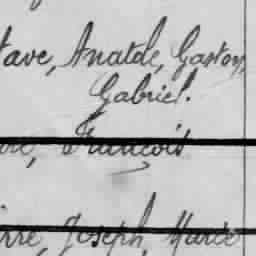 tave, Anatole, Gaston,
Gabriel.
re, François
rre, Joseph, Marie